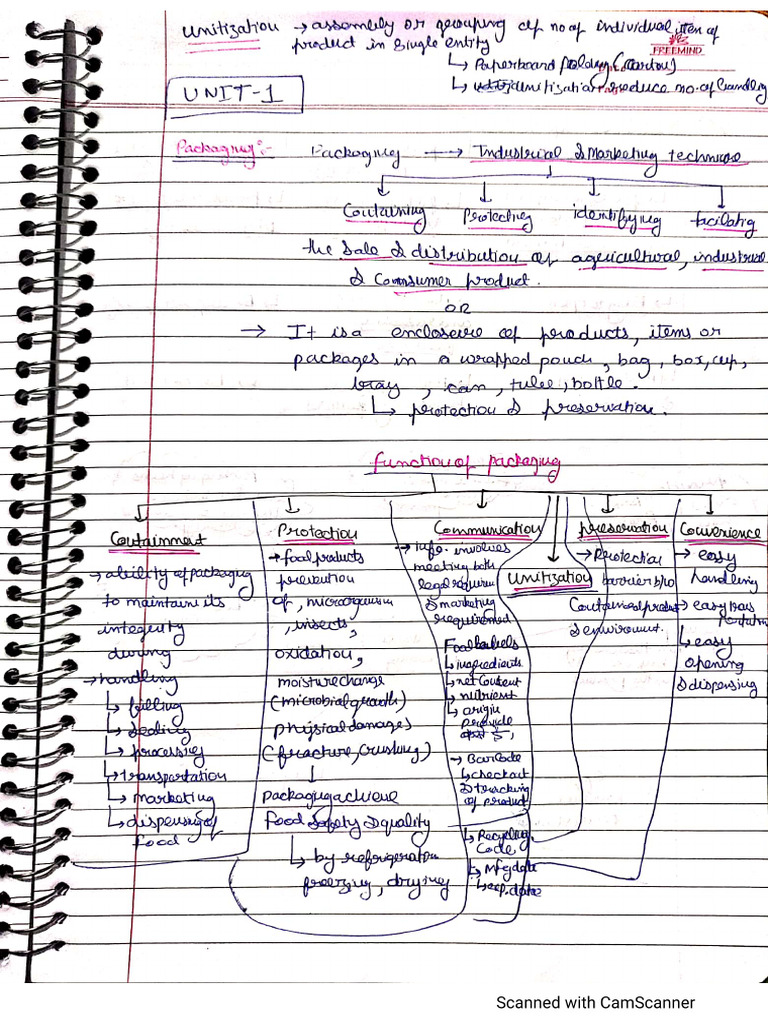 Unitization → assembly or grouping of no of individual item of
product in single entity
FREEMIND
↳ Paperboard folding (carton)
↳ unitization reduce no. of handling
UNIT-1
Packaging:- Packaging → Industrial & Marketing technique
Containing Protecting identifying facilatig
the Sale & distribution of agricultural, industrial
& Consumer product.
OR
→ It is a enclosure of products, items or
packages in a wrapped pouch, bag, box, cup,
tray, can, tube, bottle.
↳ protection & preservation.
function of packaging
Containment
→ ability of packaging
to maintain its
integrity
during
→ handling
↳ filling
↳ Sealing
↳ processing
↳ transportation
↳ marketing
↳ dispensing of
food
Protection
→ food products
prevention
of, microorganism
, insects,
oxidation,
moisture change
(microbial growth)
physical damages
(fracture, crushing)
↓
packaging achieve
food safety & quality
↳ by refrigeration
freezing, drying
Communication
→ info. involves
meeting both
legal requirem
& marketing
requirements
Food labels
↳ ingredients
↳ net content
↳ nutrient
↳ origin
provide
→ Barcode
↳ checkout
& tracking
of product
↳ Recycling
Code
↳ Mfg date
↳ exp. date
Unitization
preservation
→ Protection
barrier b/w
Contained product
& environment.
Convenience
→ easy
handling
→ easy
↳ easy
opening
& dispensing
Scanned with CamScanner